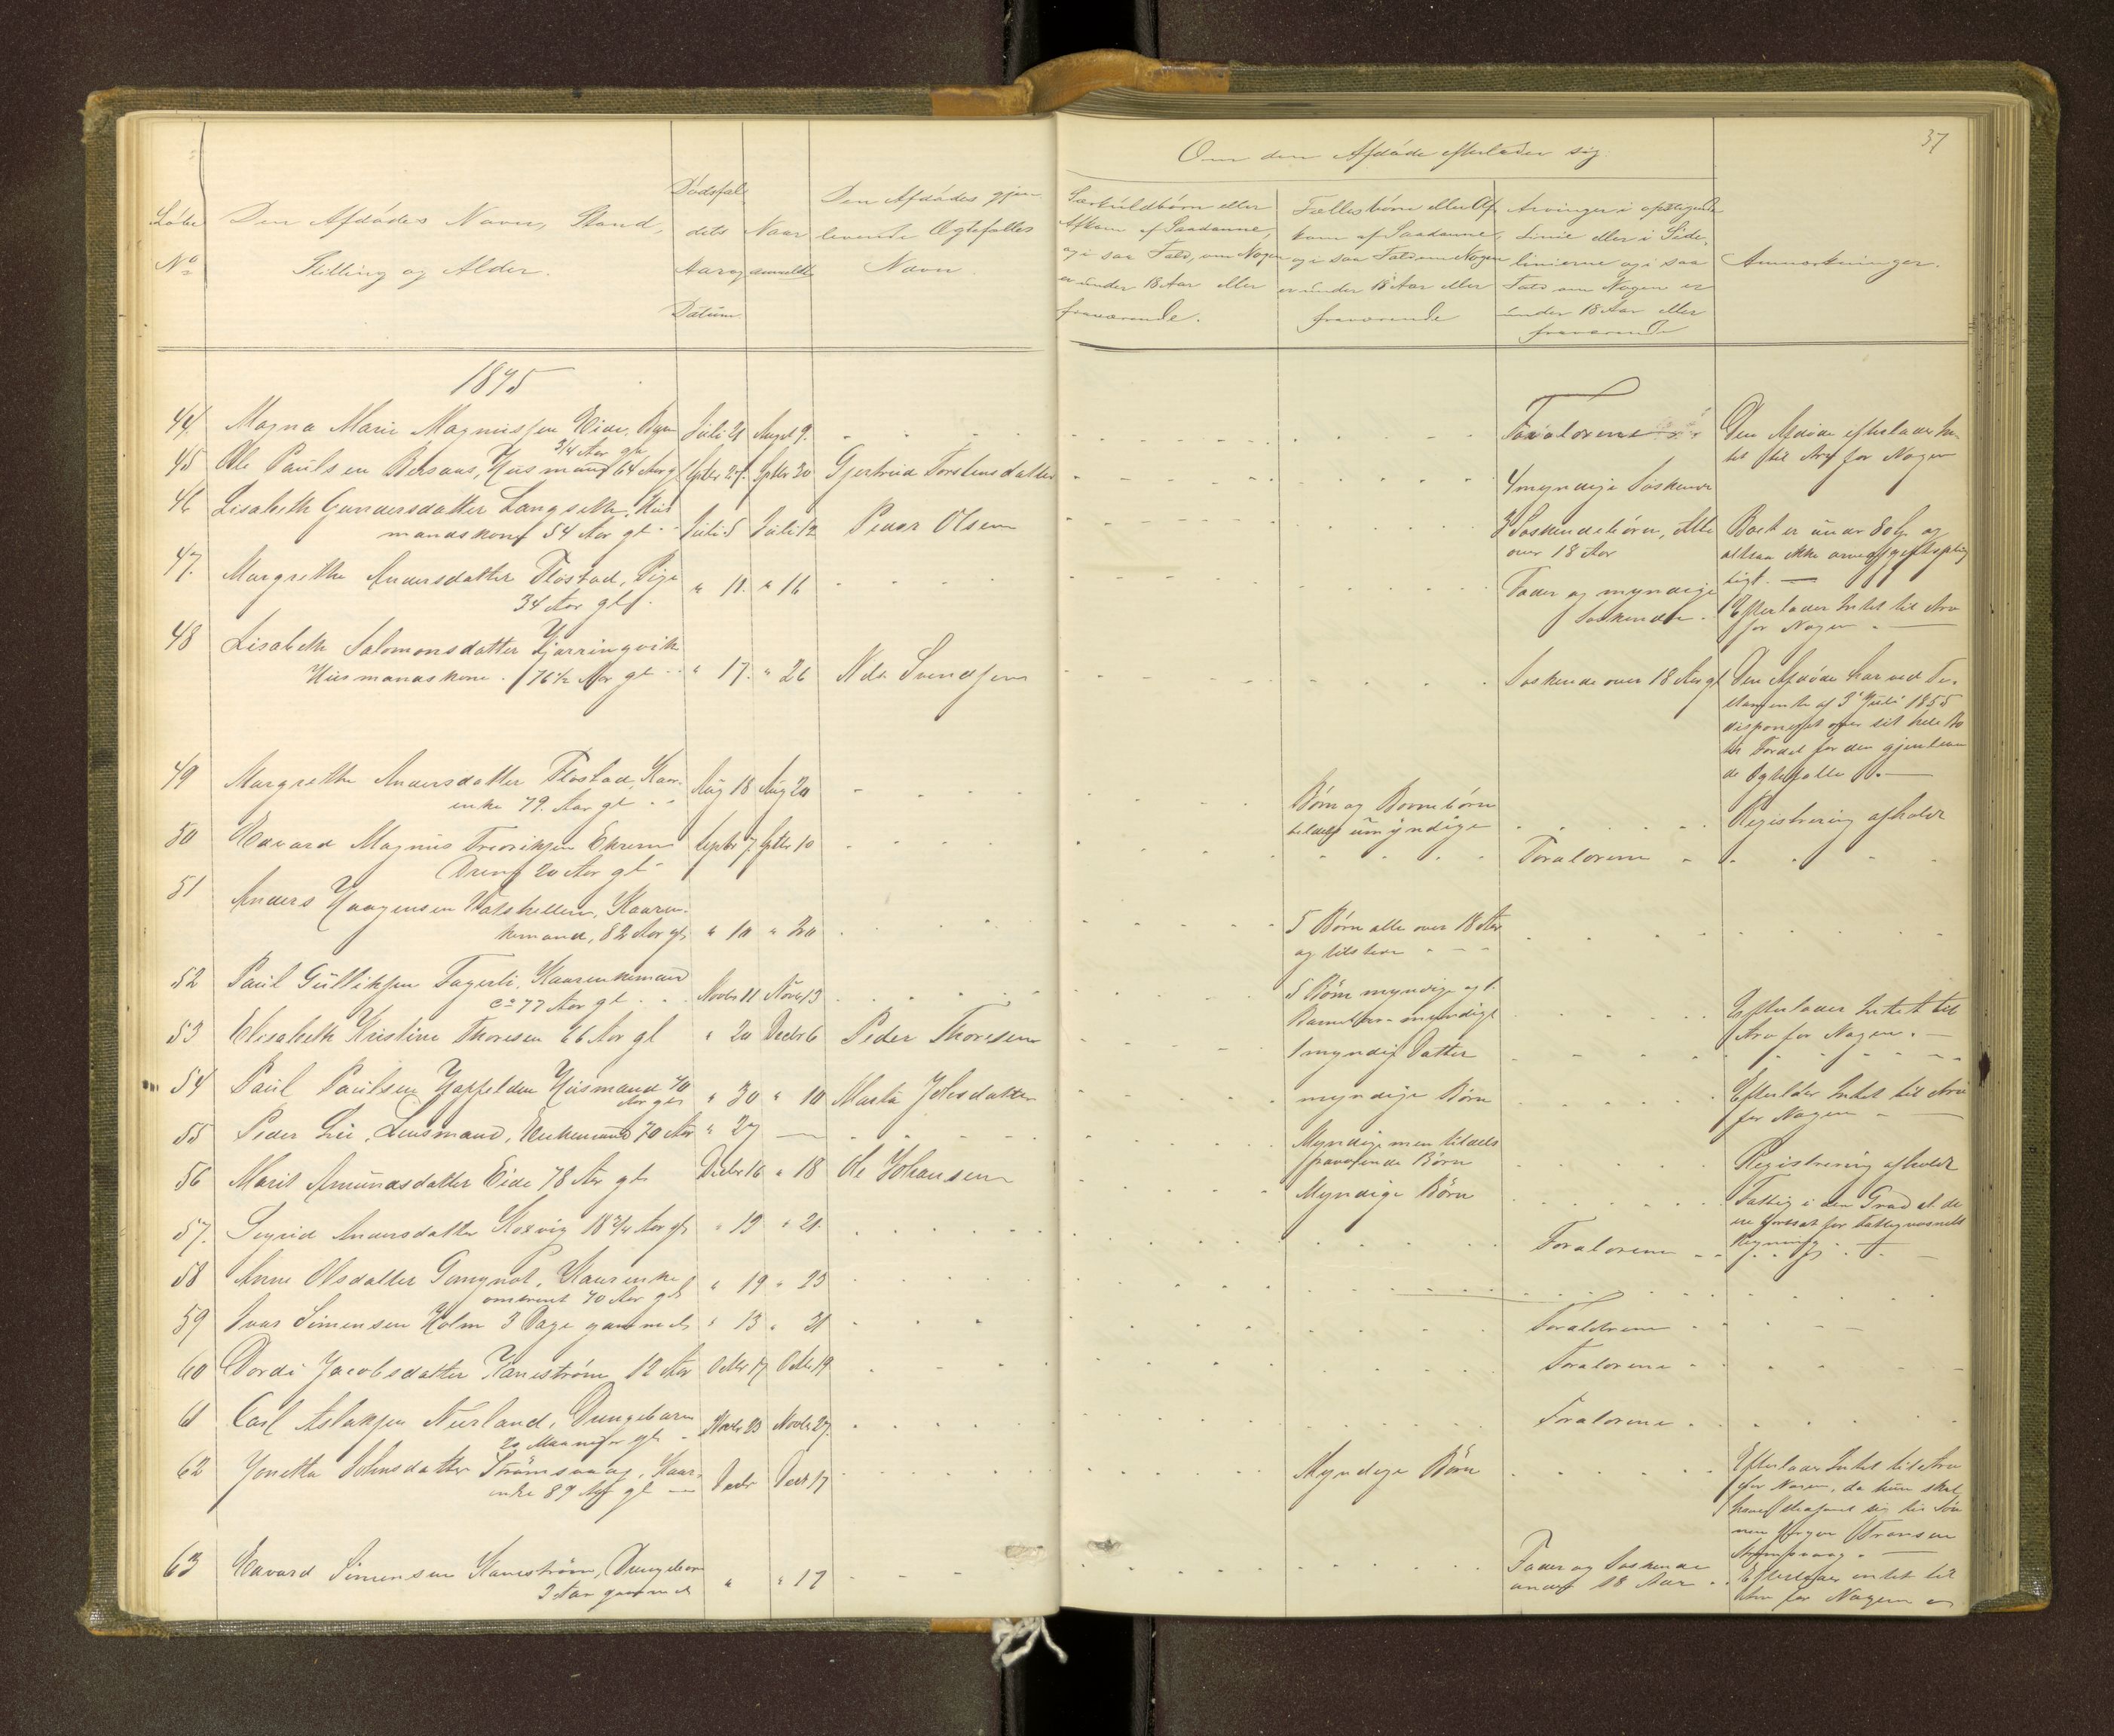 37
Om den Afdøde efterlader sig
Løbe
No
Den Afdødes Navn, Stand,
Stilling og Alder.
Dødsfal
dets
Aar og
Datum
Naar
anmeldt
Den Afdødes gjen
levende Ægtefælles
Navn
Særkuldbørn eller
Afkom af Saadanne,
og i saa Fald, om Nogen
er under 18 Aar eller
fraværende.
Fællesbørn eller Af
kom af Saadanne,
og i saa Fald om Nogen
er under 18 Aar eller
fraværende
Arvinger i opstigende
Linie eller i Side,
linierne og i saa
Fald om Nogen er
under 18 Aar eller
fraværende
Anmærkninger.
1875
44. Magna Marie Magnussen Eide, Barn Juli 21 August 9. Forældrene Den Afdøde efterlader In
3/4 Aar gl. tet til Arv for Nogen
45 Ole Paulsen Husmand 64 Aar gl Septbr 27. Septbr 30 Gjertrud Torstensdatter 4 myndige Søskende
46 Lisabeth Gundersdatter Langseth, Hus
mandskone 54 Aar gl. Juli 5 Juli 12 Peder Olsen 3 Søskendebørn, Alle
over 18 Aar
Boet er under og
altsaa ikke
tigt.
47. Margrethe Andersdatter Flostad, Pige
34 Aar gl. " 11. " 16 Fader og myndige
Søskende.
Efterlader Intet til Arv
for Nogen.
48 Lisabeth Salomonsdatter
Husmandskone. 76 1/2 Aar gl " 17. " 26 Nils Svendsen Søskende over 18 Aar gl Den Afdøde har ved Te-
stamente af 3 Juli 1855
disponeret over sit hele Bo
til Fordel for den gjenleven
de Ægtefælle.
49 Margrethe Andersdatter Flostad, Kaar-
enke 79. Aar gl Aug 18 Aug 20 Børn og Børnebørn
tildels umyndige
Registrering afholdt
50 Edvard Magnus Fredriksen Ekrem Septbr 7. Septbr 10 Forældrene
Dreng 20 Aar gl
51 Anders Haagensen Kaaren-
kemand, 82 Aar gl. " 10 " 20 5 Børn alle over 18 Aar
og tilstede
52 Paul Gulliksen Fagerli, Kaarenkemand
ca 77 Aar gl. Novbr 11 Novbr 13 5 Børn myndige og 1
Barnebarn myndigt
Efterlader Intet til
Arv for Nogen.
53 Elisabeth Kristine Thoresen 66 Aar gl " 20 Decbr 6 Peder Thoresen 1 myndig Datter
54 Paul Paulsen Husmand 70
Aar gl. " 30 " 10 Marta Johsdatter myndige Børn Efterlader Intet til Arv
for Nogen
55 Peder Lie, Lensmand, Enkemand 70 Aar " 27 Myndige men tildels
fraværende Børn
Registrering afholdt
56 Marit Amundsdatter Eide 78 Aar gl. Decbr 16 " 18 Ole Johansen Myndige Børn Fattig i den Grad at de
ere for Fattigvæsenets
Regning.
57. Sigrid Andersdatter Koksvig 18 3/4 Aar gl " 19 " 21. Forældrene
58 Anne Olsdatter Kaarenke
omtrent 70 Aar gl " 19 " 23
59 Ivar Simensen Holm 3 Dage gammel " 13 " 31 Forældrene
60 Dordi Jacobsdatter Kanestrøm 12 Aar Octbr 17 Octbr 19 Forældrene
61 Carl Aslaksen Neerland, Drengebarn Novbr 23 Novbr 27. Forældrene
20 Maaneder gl.
62 Jonetta Johnsdatter Strømsvaag, Kaar-
enke 89 Aar gl Decbr Decbr 17 Myndige Børn Efterlader Intet til Arv
for Nogen, da hun skal
have sig til Søn
nen
Strømsvaag.
63 Edvard Simensen Kanestrøm, Drengebarn
3 Aar gammel " " 17 Fader og Søskende
under 18 Aar.
Efterlader intet til
Arv for Nogen